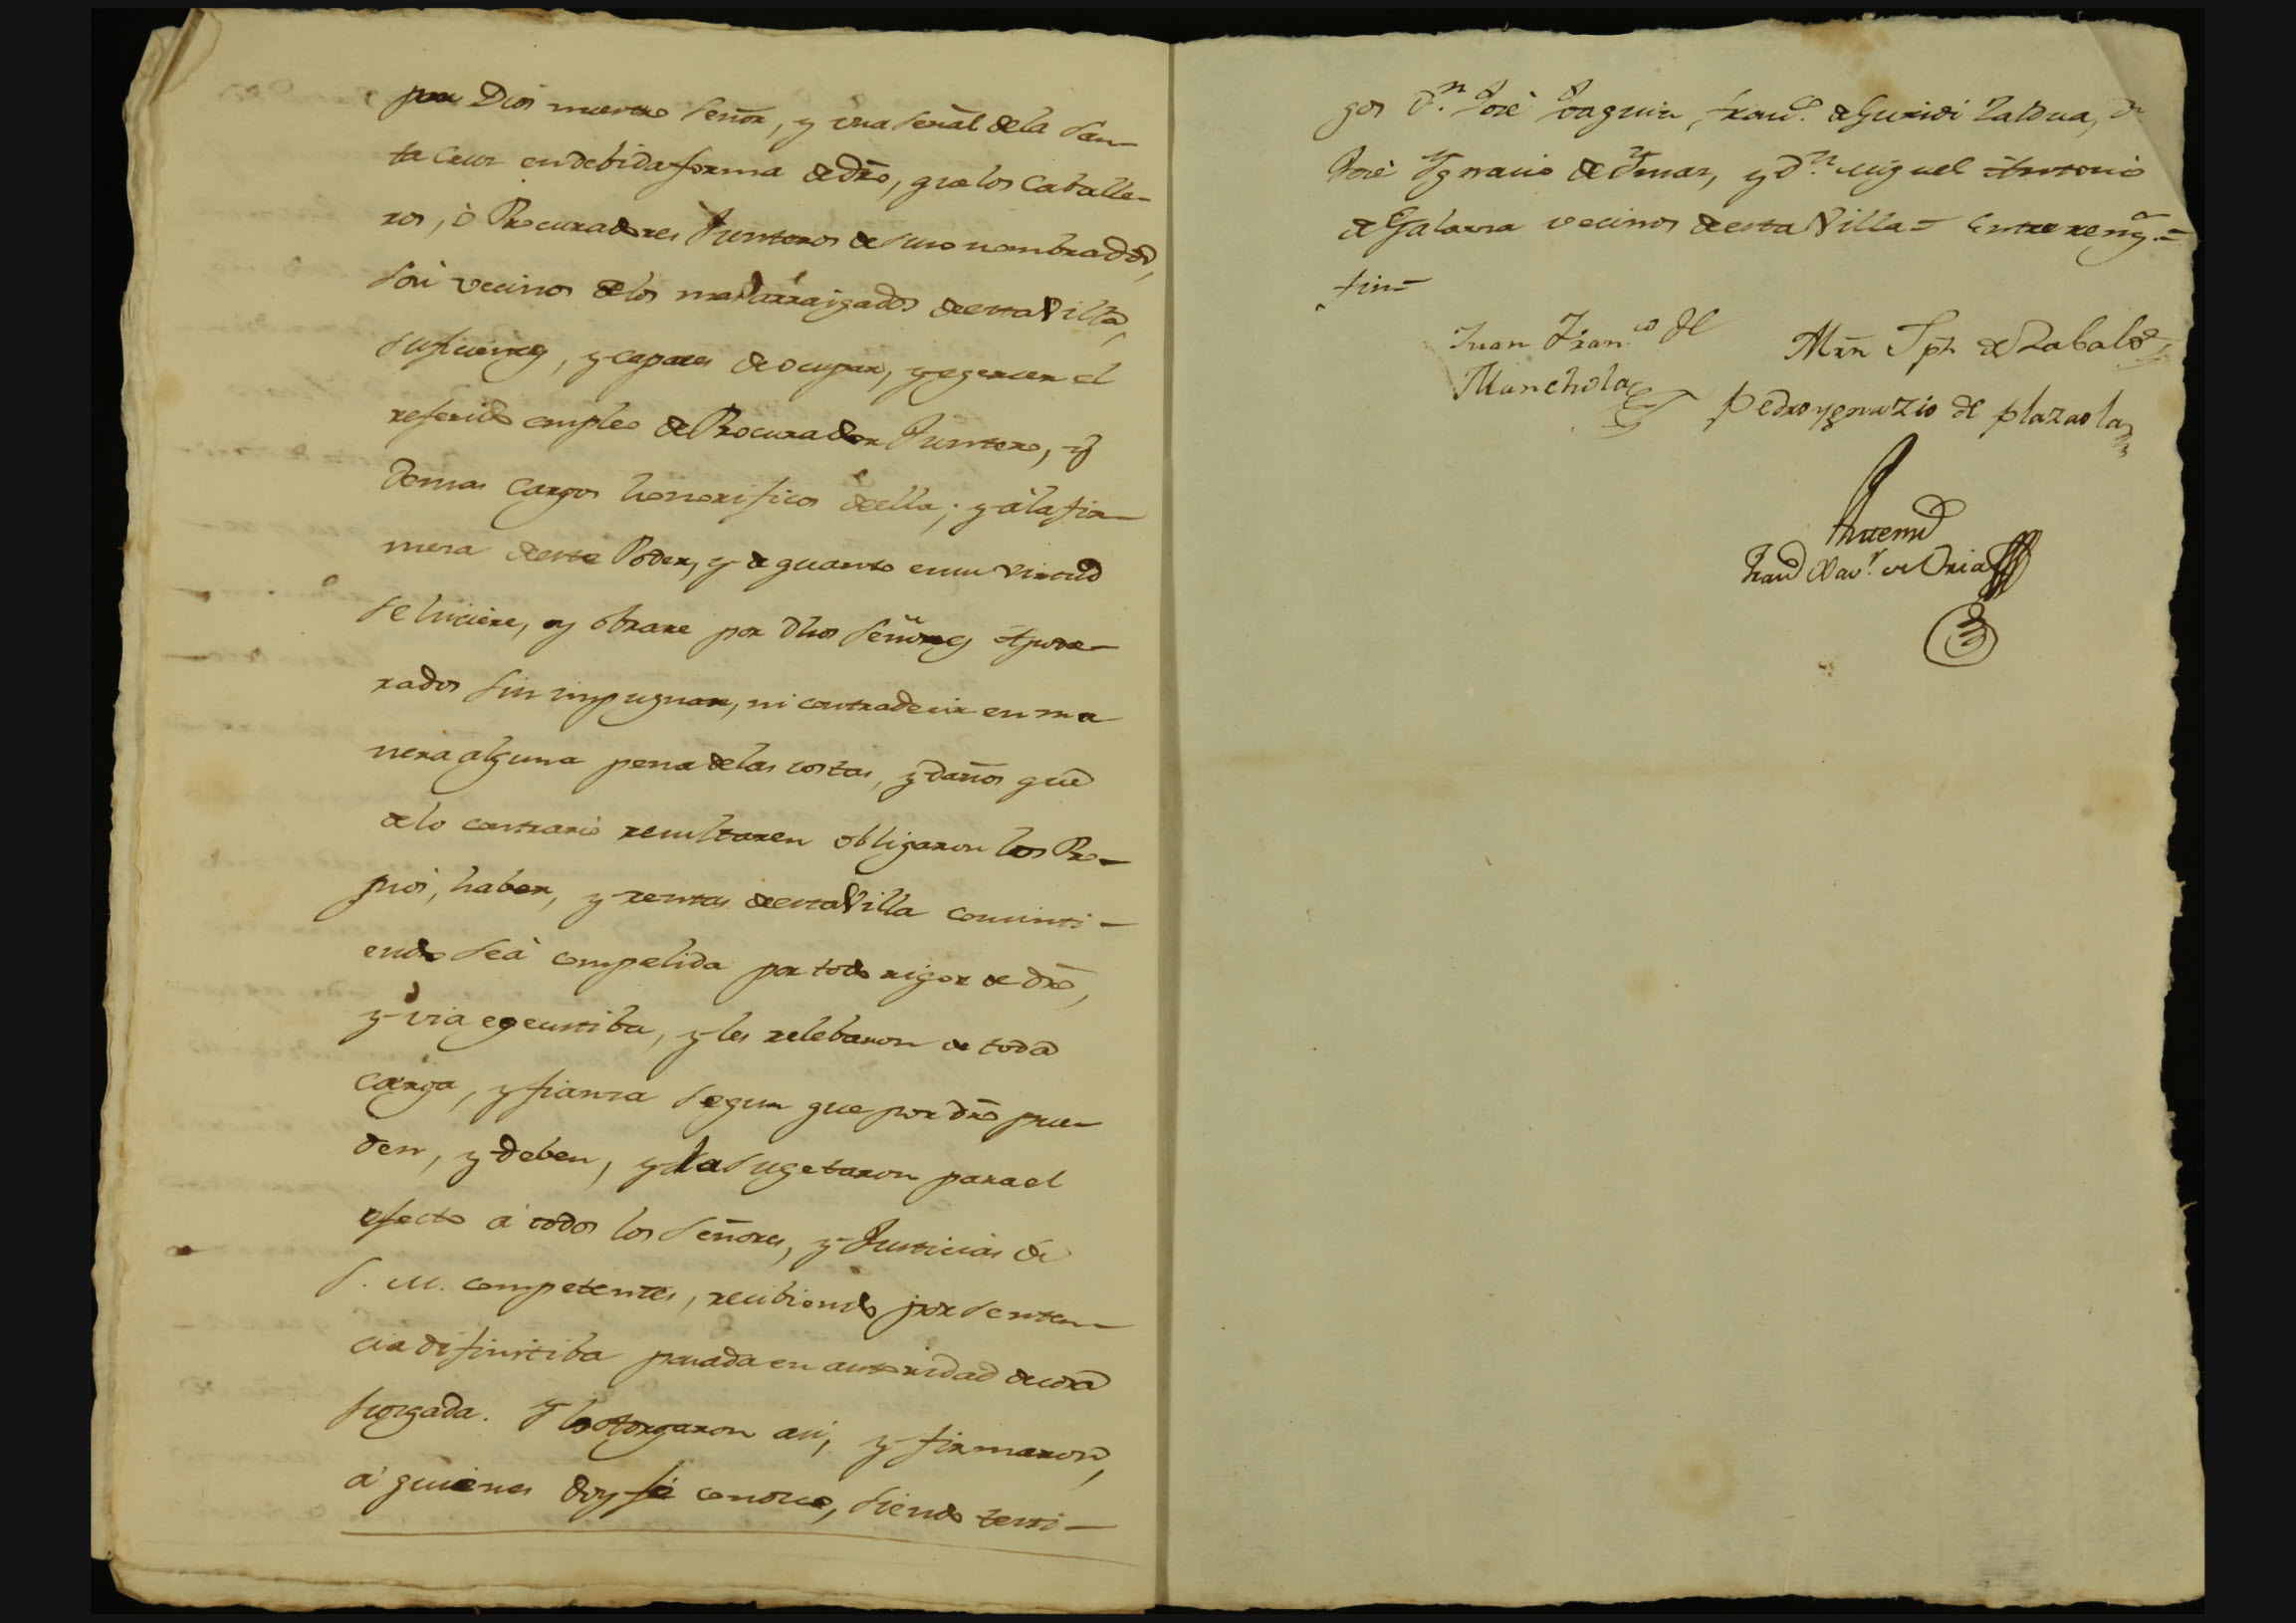 por Dios nuestro Señor, y una señal dela San-
ta Cruz en debida forma de dro, que los Caballe-
ros, ò Procuradores Junteros de suso nombrados,
son vecinos delos mas arraigados de esta Villa,
suficientes, y capaces de ocupar, y egercer el
referido empleo de Procurador Juntero, y
demas cargos honorificos de ella; y à la fir-
mesa de este Poder, y de quanto en su virtud
se hiciere, y obrare por dhos Señores Apode-
rados sin impugnar, ni contradecir en ma
nera alguna pena delas costas, y daños que
de lo contrario resultaren obligaron los Pro-
pios, haber, y rentas de esta Villa consinti-
endo seà compelida por todo rigor de dro,
y via egecutiba, y les relebaron de toda
carga, y fianza segun que por dro pue-
den, y deben, y la sugetaron para el
efecto à todos los Señores, y Justicias de
S. M. competentes, recibiendo por senten-
cia difinitiba pasada en autoridad de cosa
juzgada. Y lo otorgaron asi, y firmaron,
à quienes doy fé conozco, siendo testi-
gos D.n José Joaquin, Fran.co de Guridi Zaldua, Dn
José Ygnacio de Ymaz, y D.n Miguel Antonio
de Galarza vecinos de esta Villa = Entre reng.a =
fin =
Juan Fran.co de
Mancholas
Mrn Jph de Zabalo
Pedro ygnazio de plazaola
Antemi
Fran.co Xav.r de Oria